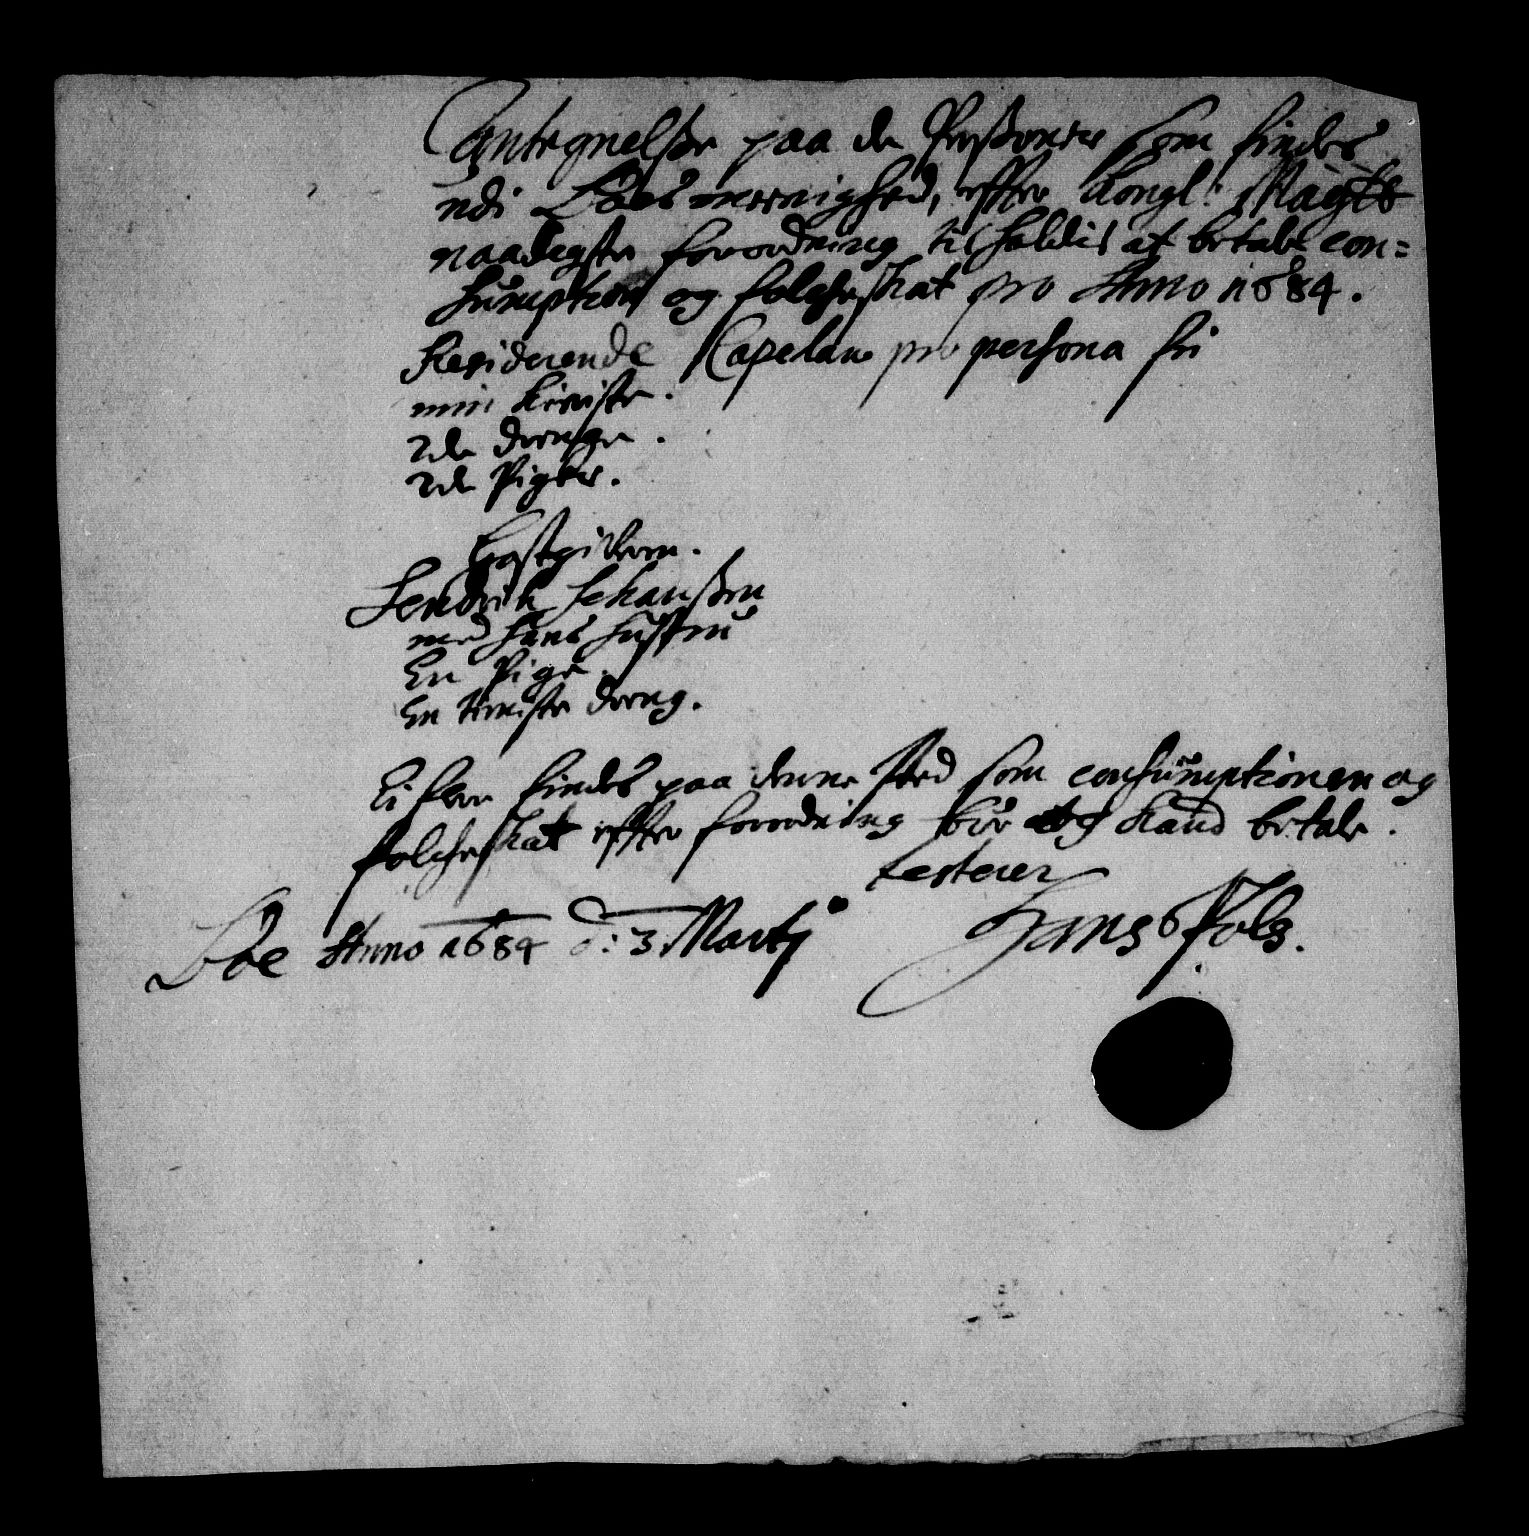 Antegnelße paa de Perßoner som findes
udi Boes mennighed, effter Kongl: Mayts
naadigste forordning tilholdis at betale con=
sumption og folcheskat pro Anno 1684.
Residerende Kapelan pro persona fri
min tieniste.
2de drenge.
2de Piger.
Gastgiveren.
Hendrik Johanßen
med hans hustru
En Pige.
En tieniste dreng.
Ei flere findes paa denne sted som consumptionen og
folcheskat effter forordning bør og kand betale.
testerer
Boe Anno 1684 d: 3 Martij Hans